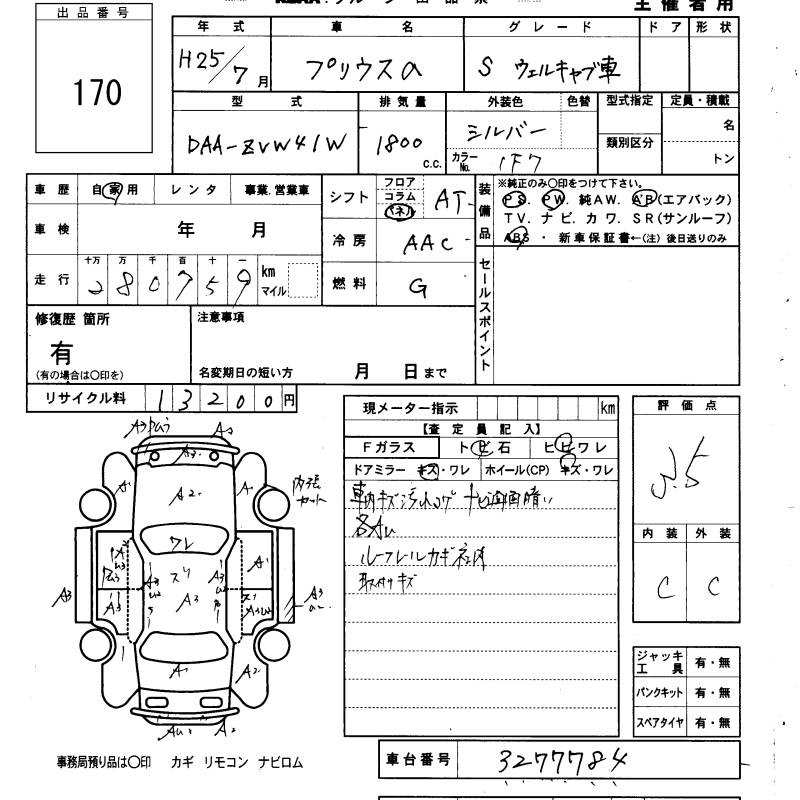 主催者用
出品番号
170
年式 車名 グレード ドア 形状
H25/7月 プリウスα S ウェルキャブ車
型式 排気量 外装色 色替 型式指定 定員・積載
DAA-ZVW41W 1800 c.c. シルバー 名
カラーNo. 1F7 類別区分 トン
車歴 自家用 レンタ 事業,営業車
シフト フロア コラム パネル AT
装備品 ※純正のみ〇印をつけて下さい。
PS. PW. 純AW. AB(エアバック)
TV. ナビ. カワ. SR(サンルーフ)
ABS ・ 新車保証書←(注) 後日送りのみ
車検 年 月
冷房 AAC
走行 十万 万 千 百 十 一
280759 km マイル
燃料 G
セールスポイント
修復歴 箇所
有
(有の場合は〇印を)
注意事項
名変期日の短い方 月 日まで
リサイクル料 13200円
現メーター指示 km
【査定員記入】
Fガラス トビ石 ヒビワレ
ドアミラー キズ・ワレ ホイール(CP) キズ・ワレ
車内キズ汚れコゲ ナビ画面暗い
各AU
ルーフレールカギ
取付キズ
評価点
3.5
内装 外装
C C
A3 A2
A3
A1 A2 A1
内張
カット
ワレ
A1
スリ
A3 A3 A3 A3
A3
A1
AU2 A2
ジャッキ工具 有・無
パンクキット 有・無
スペアタイヤ 有・無
事務局預り品は〇印 カギ リモコン ナビロム
車台番号 3277784